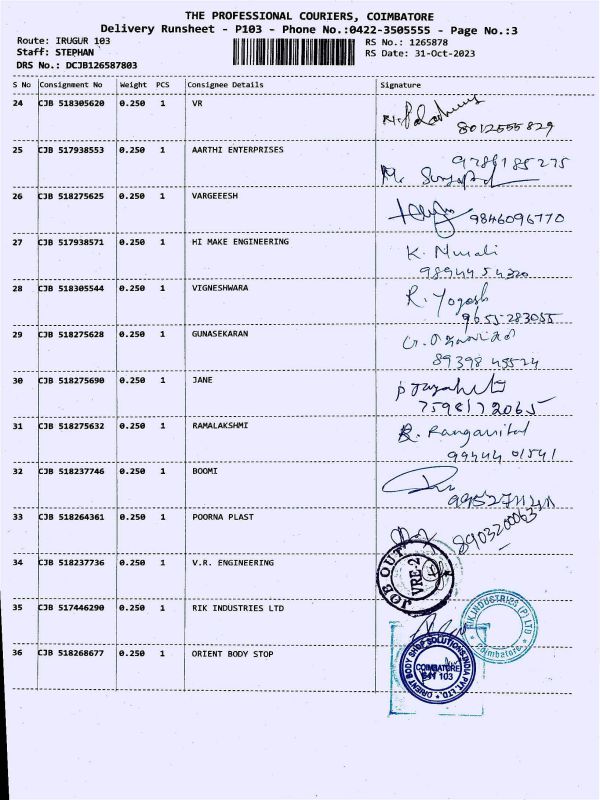 THE PROFESSIONAL COURIERS, COIMBATORE
Delivery Runsheet - P103 - Phone No.:0422-3505555 - Page No.:3
Route: IRUGUR 103 RS No.: 1265878
Staff: STEPHAN RS Date: 31-Oct-2023
DRS No.: DCJB126587803
S No Consignment No Weight PCS Consignee Details Signature
24 CJB 518305620 0.250 1 VR
8012555829
25 CJB 517938553 0.250 1 AARTHI ENTERPRISES
9786185275
26 CJB 518275625 0.250 1 VARGEEESH
9846096770
27 CJB 517938571 0.250 1 HI MAKE ENGINEERING
K. Murali
9894454320
28 CJB 518305544 0.250 1 VIGNESHWARA
R. Yogesh
9655283055
29 CJB 518275628 0.250 1 GUNASEKARAN
8939845524
30 CJB 518275690 0.250 1 JANE
7598172065
31 CJB 518275632 0.250 1 RAMALAKSHMI
R.
9944401541
32 CJB 518237746 0.250 1 BOOMI
33 CJB 518264361 0.250 1 POORNA PLAST
8903200063
34 CJB 518237736 0.250 1 V.R. ENGINEERING
JOB OUT
VRE-2
35 CJB 517446290 0.250 1 RIK INDUSTRIES LTD
RIK INDUSTRIES (P) LTD
Coimbatore
36 CJB 518268677 0.250 1 ORIENT BODY STOP
ORIENT BODY SHOP SOLUTIONS INDIA PVT. LTD.
COIMBATORE
641 103